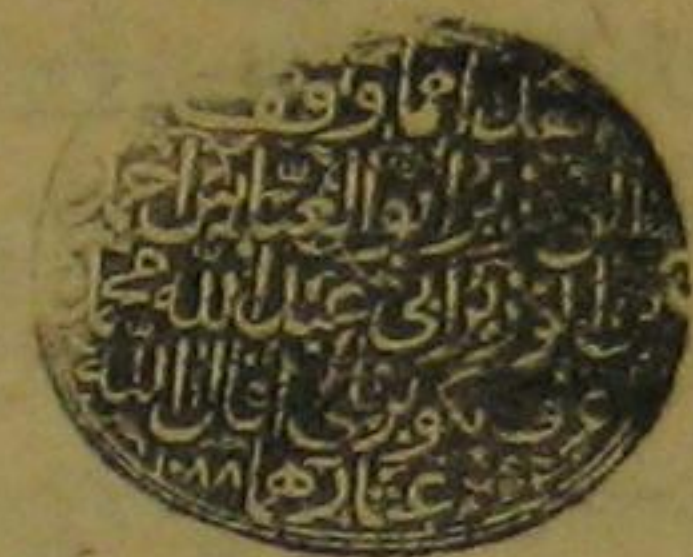 هذا مما وقف
الوزير أبو العباس احمد
بن الوزير أبي عبد الله محمد
عرف بكوبريلي اقال الله
عثارهما ١٠٨٨